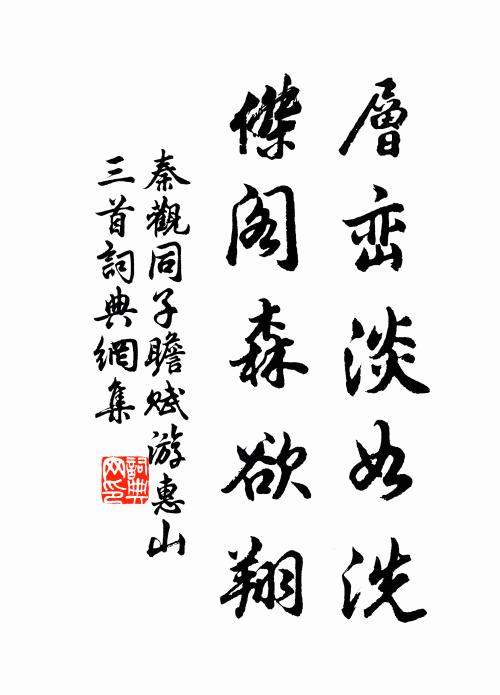 層峦淡如洗
傑阁森欲翔
秦觀同子瞻赋游惠山
三首詞典網集
詞典网印